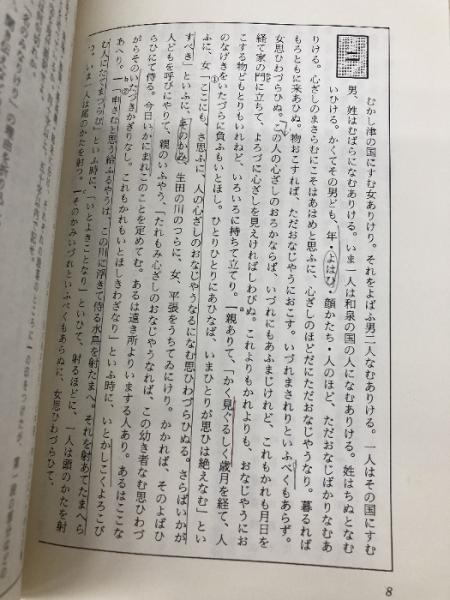 二
むかし津の国にすむ女ありけり。それをよばふ男二人なむありける。一人はその国にすむ
男、姓はむばらになむありける。いま一人は和泉の国の人になむありける。姓はちぬとなむ
いひける。かくてその男ども、年・よはひ・顔かたち・人のほど、ただおなじばかりなむあ
りける。心ざしのまさらむにこそはあはめと思ふに、心ざしのほどだにただおなじやうなり。暮るれば
もろともに来あひぬ。物おこすれば、ただおなじやうにおこす。いづれまされりといふべくもあらず。
女思ひわづらひぬ。この人の心ざしのおろかならば、いづれにもあふまじけれど、これもかれも月日を
経て家の門に立ちて、よろづに心ざしを見えければしわびぬ。これよりもかれよりも、おなじやうにお
こする物どもとりもいれねど、いろいろに持ちて立てり。親ありて、「かく見ぐるしく歳月を経て、人
のなげきをいたづらに負ふもいとほし。ひとりひとりにあひなば、いまひとりが思ひは絶えなむ」とい
ふに、女「①ここにも、さ思ふに、人の心ざしのおなじやうなるになむ思ひわづらひぬる。さらばいかが
すべき」といふに、そのかみ、生田の川のつらに、女、平張をうちてゐにけり。かかれば、そのよばひ
人どもを呼びにやりて、親のいふやう、「たれもみ心ざしのおなじやうなれば、この幼き者なむ思ひわづ
らひにて侍る。今日いかにまれこのことを定めてむ。あるは遠き所よりいまする人あり。あるはここな
がらそのいたづきかぎりなし。これもかれもいとほしきわざなり」といふ時に、いとかしこくよろこび
あへり。「申さむと思う給ふるやうは、この川に浮きて侍る水鳥を射たまへ。それを射あてたまへら
む人にたてまつらむ」といふ時に、「いとよきことなり」といひて、射るほどに、一人は頭のかたを射
つ。いま一人は尾のかたを射つ。そのかみいづれといふべくもあらぬに、女思ひわづらひて、
8